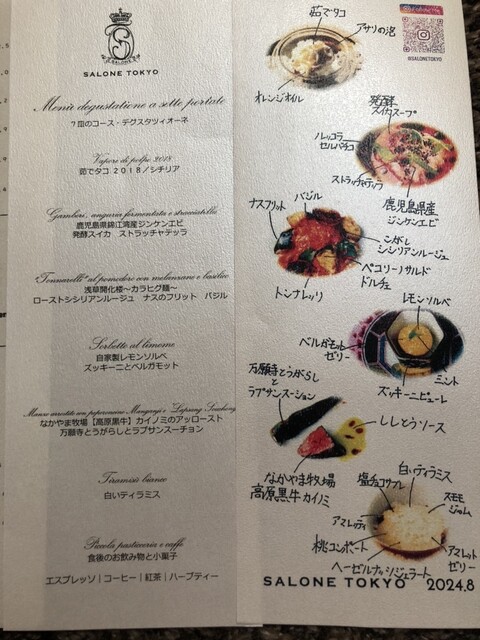 SALONE
SALONE TOKYO
Menù degustazione a sette portate
7皿のコース・デグスタツィオーネ
Vapori di polpo 2018
茹でタコ 2018／シチリア
Gamberi, anguria fermentata e stracciatella
鹿児島県錦江湾産ジンケンエビ
発酵スイカ ストラッチャテッラ
Tonnarelli al pomodoro con melanzane e basilico
浅草開化楼〜カラヒグ麺〜
ローストシシリアンルージュ ナスのフリット バジル
Sorbetto al limone
自家製レモンソルベ
ズッキーニとベルガモット
Manzo arrostito con peperoncino Manganji e Lapsang Souchong
なかやま牧場【高原黒牛】カイノミのアッロースト
万願寺とうがらしとラプサンスーチョン
Tiramisù bianco
白いティラミス
Piccola pasticceria e caffè
食後のお飲み物と小菓子
エスプレッソ｜コーヒー｜紅茶｜ハーブティー
@SALONETOKYO
茹でタコ
アサリの泡
オレンジオイル
発酵
スイカスープ
ルッコラ
セルバチコ
ストラッチャテッラ
鹿児島県産
ジンケンエビ
バジル
ナスフリット
こがし
シシリアンルージュ
ペコリーノサルド
ドルチェ
トンナレッリ
レモンソルベ
ベルガモット
ゼリー
ミント
ズッキーニピューレ
万願寺とうがらしと
ラプサンスーション
ししとうソース
なかやま牧場
高原黒牛カイノミ
白いティラミス
塩チョコサブレ
スモモ
ジャム
アマレッティ
桃コンポート
アマレット
ゼリー
ヘーゼルナッツジェラート
SALONE TOKYO 2024.8